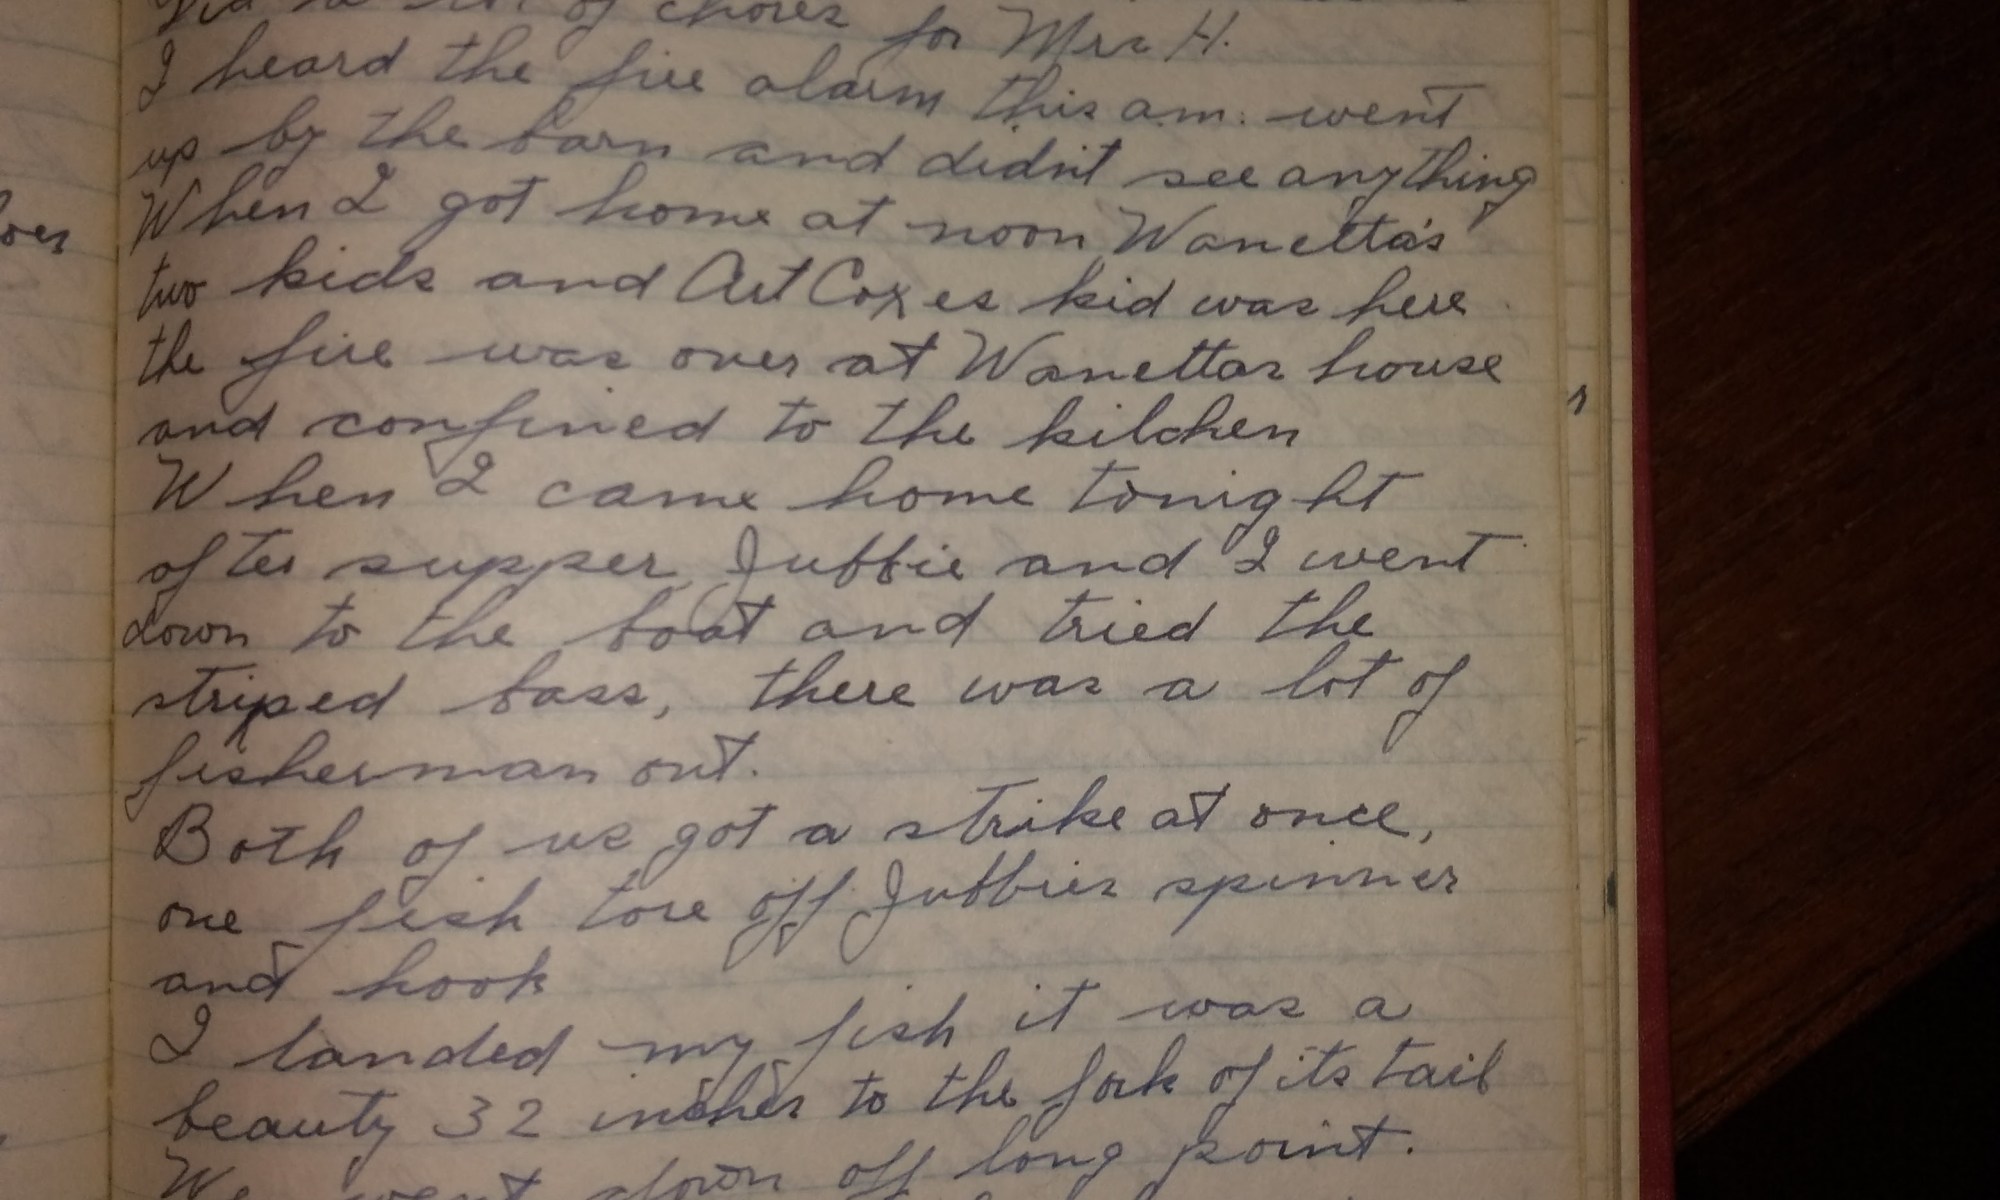 Did a lot of chores for Mrs H.
I heard the fire alarm this a.m. went
up by the barn and didn't see anything
When I got home at noon Wanetta's
two kids and Art Coxes kid was here
the fire was over at Wanettas house
and confined to the kitchen
When I came home tonight
after supper Jubbie and I went
down to the boat and tried the
striped bass, there was a lot of
fisherman out.
Both of us got a strike at once,
one fish tore off Jubbies spinner
and hook
I landed my fish it was a
beauty 32 inches to the fork of its tail
We went down off long point.